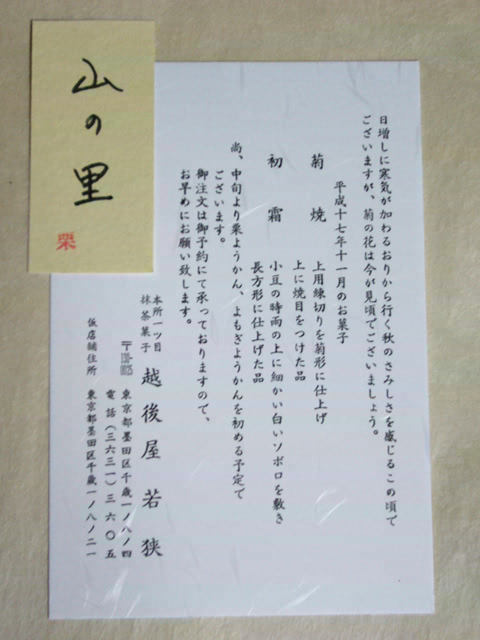 山の里
栗
日増しに寒気が加わるおりから行く秋のさみしさを感じるこの頃で
ございますが、菊の花は今が見頃でございましょう。
平成十七年十一月のお菓子
菊焼 上用練切りを菊形に仕上げ
上に焼目をつけた品
初霜 小豆の時雨の上に細かい白いソボロを敷き
長方形に仕上げた品
尚、中旬より栗ようかん、よもぎようかんを初める予定で
ございます。
御注文は御予約にて承っておりますので、
お早めにお願い致します。
本所一ッ目
抹茶菓子 越後屋若狭
東京都墨田区千歳一ノ八ノ四
電話(三六三一)三六〇五
仮店舗住所 東京都墨田区千歳一ノ八ノ二一